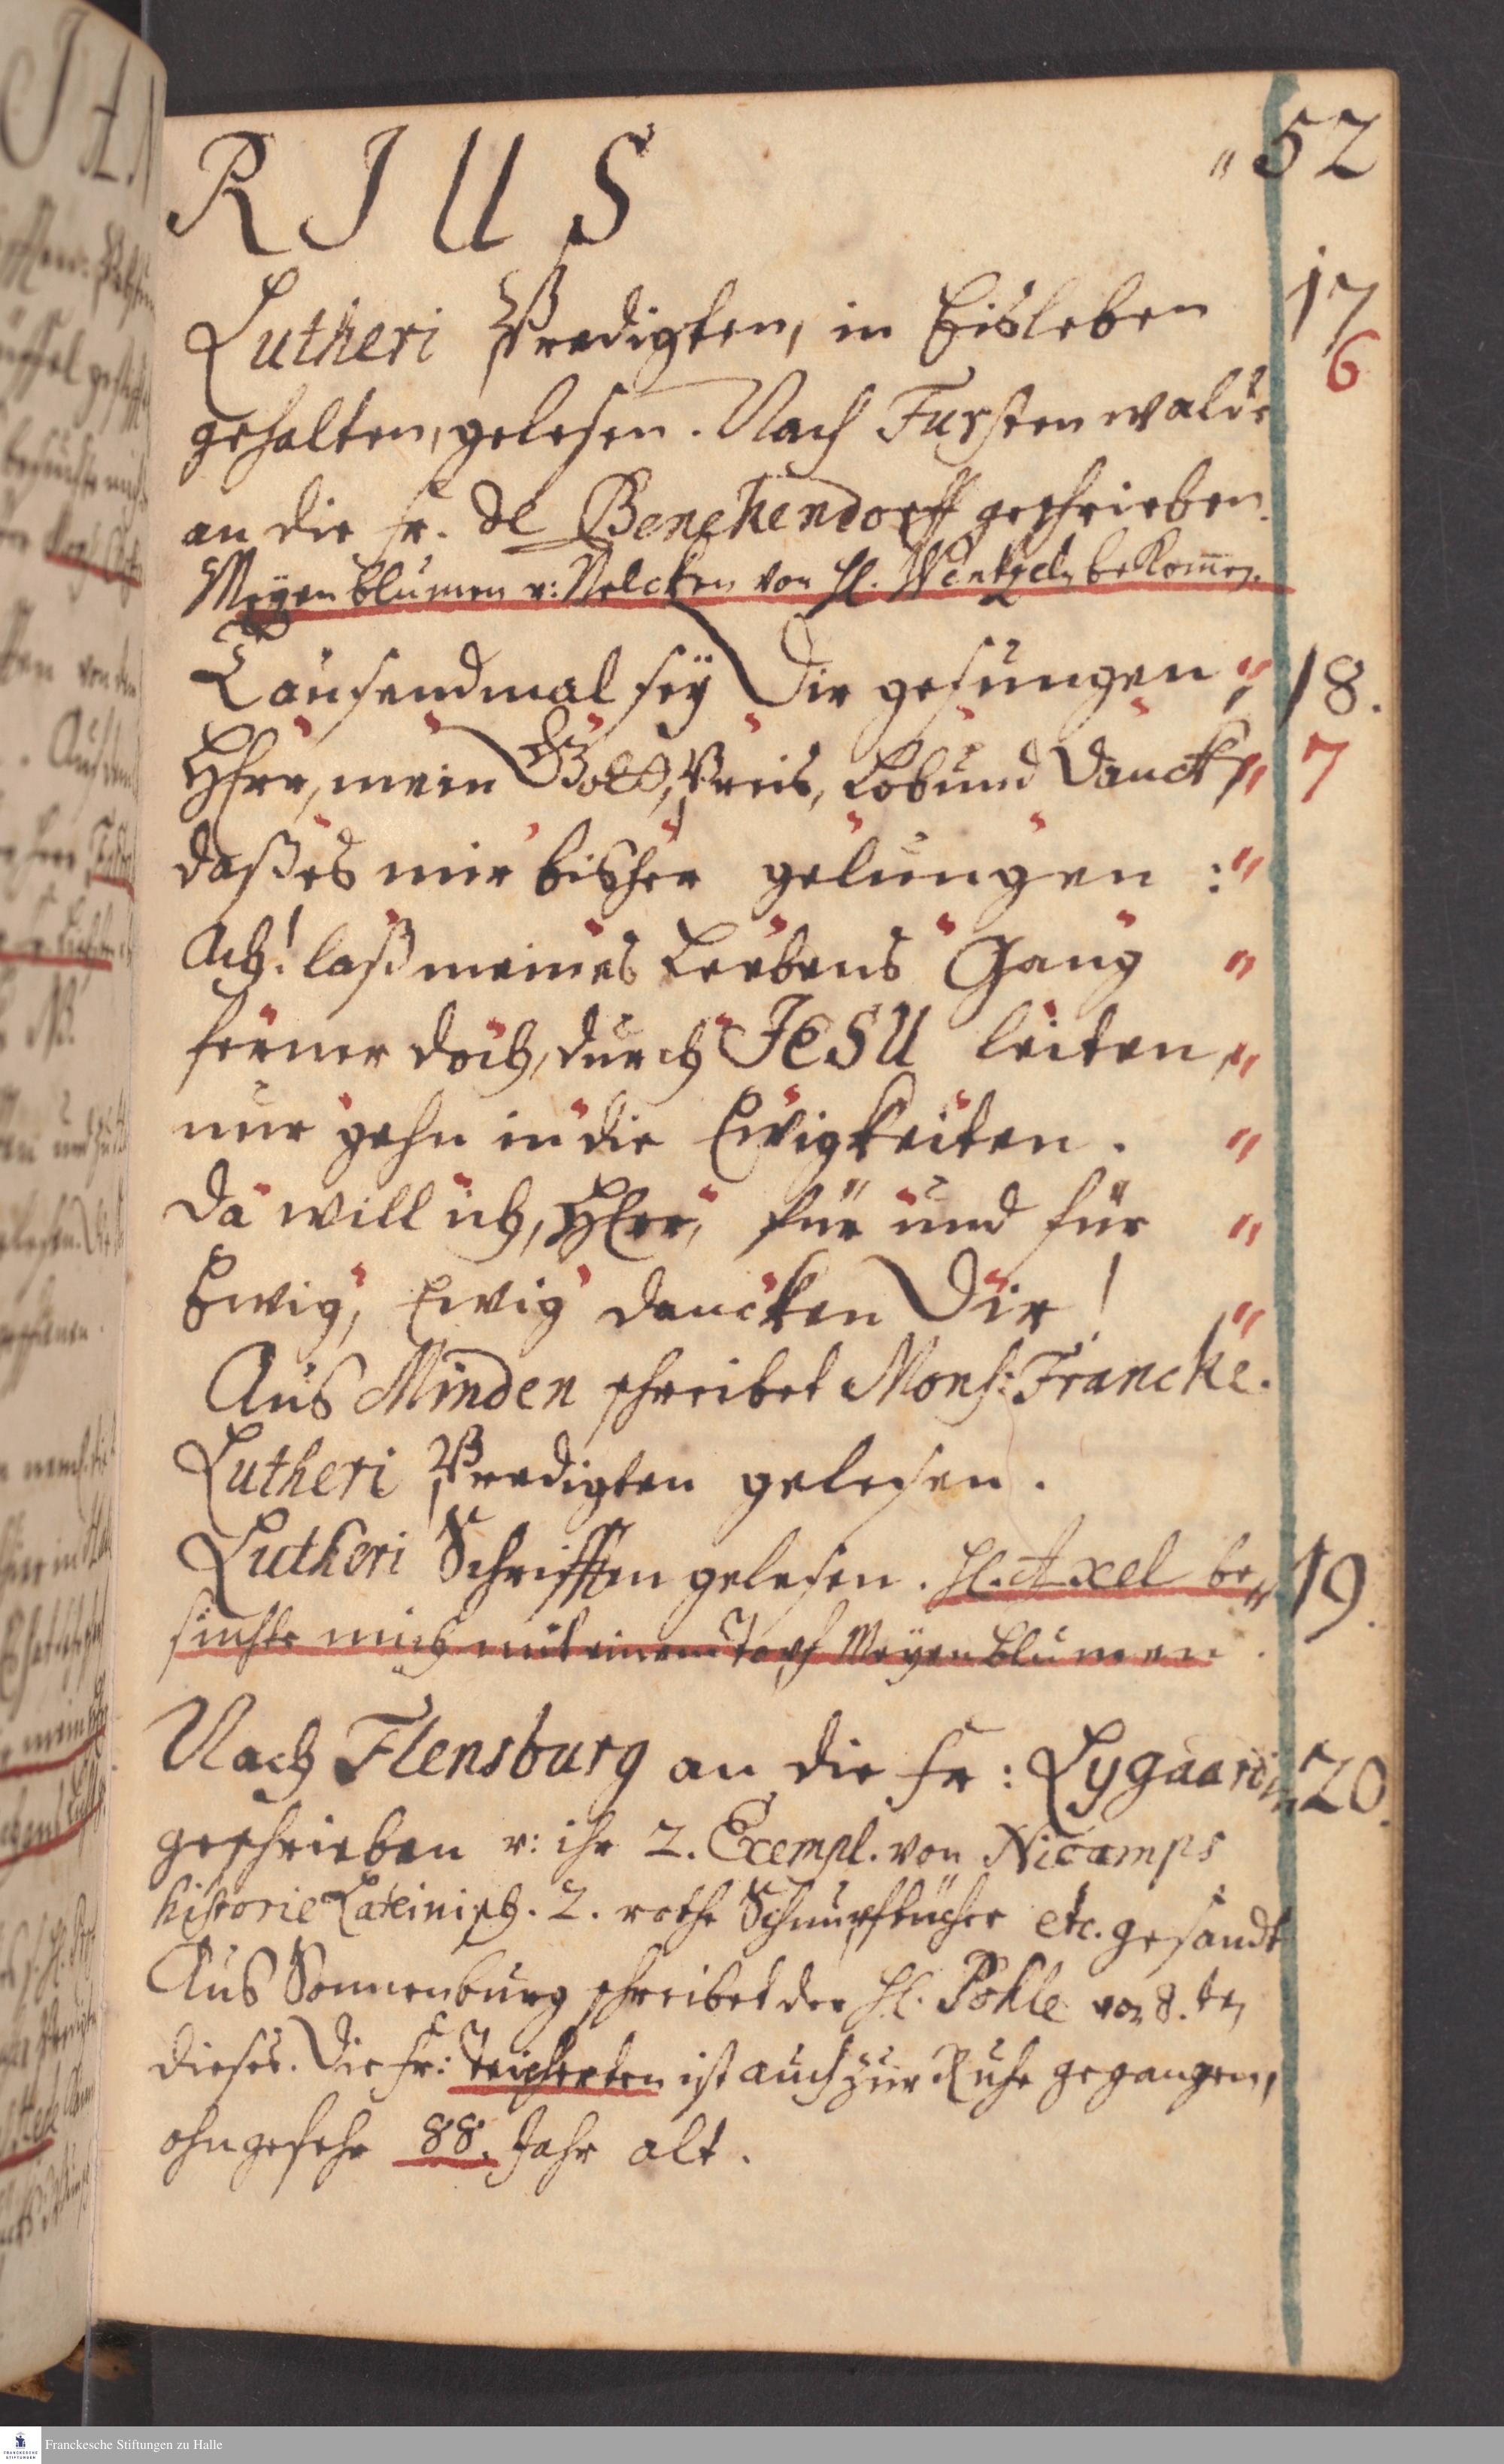 RIUS „ 52
Lutheri Predigten, in Eisleben 17
6
gehalten, gelesen. Nach Furstenwalde
an die Fr. de Benekendorff geschrieben.
Meyenblumen u: Nelcken von H. Wentzeln bekom̄en.
Tausendmal sey Dir gesungen „ 18.
HErr, mein GOtt, Preis, Lob und Danck, „ 7
daß es mir bisher gelungen : „
Ach! laß meines Lebens Gang „
ferner doch, durch JESU leiten, „
nur gehn in die Ewigkeiten. „
Da will ich, HErr, für und für „
Ewig, Ewig dancken Dir! „
Aus Minden schreibet Mons: Francke.
Lutheri Predigten gelesen.
Lutheri Schrifften gelesen. H. Axel be„ 19.
suchte mich mit einem Topf Meyenblumen.
Nach Flensburg an die Fr: Lygaardin 20.
geschrieben u: ihr 2. Exempl. von Nicamps
historie Lateinisch. 2. rothe Schnupftücher etc. gesandt
Aus Sonnenburg schreibet der H. Pohle vom 8.ten
dieses. Die Fr: Teicherten ist auch zur Ruhe gegangen,
ohngefehr 88. Jahr alt.
Franckesche Stiftungen zu Halle